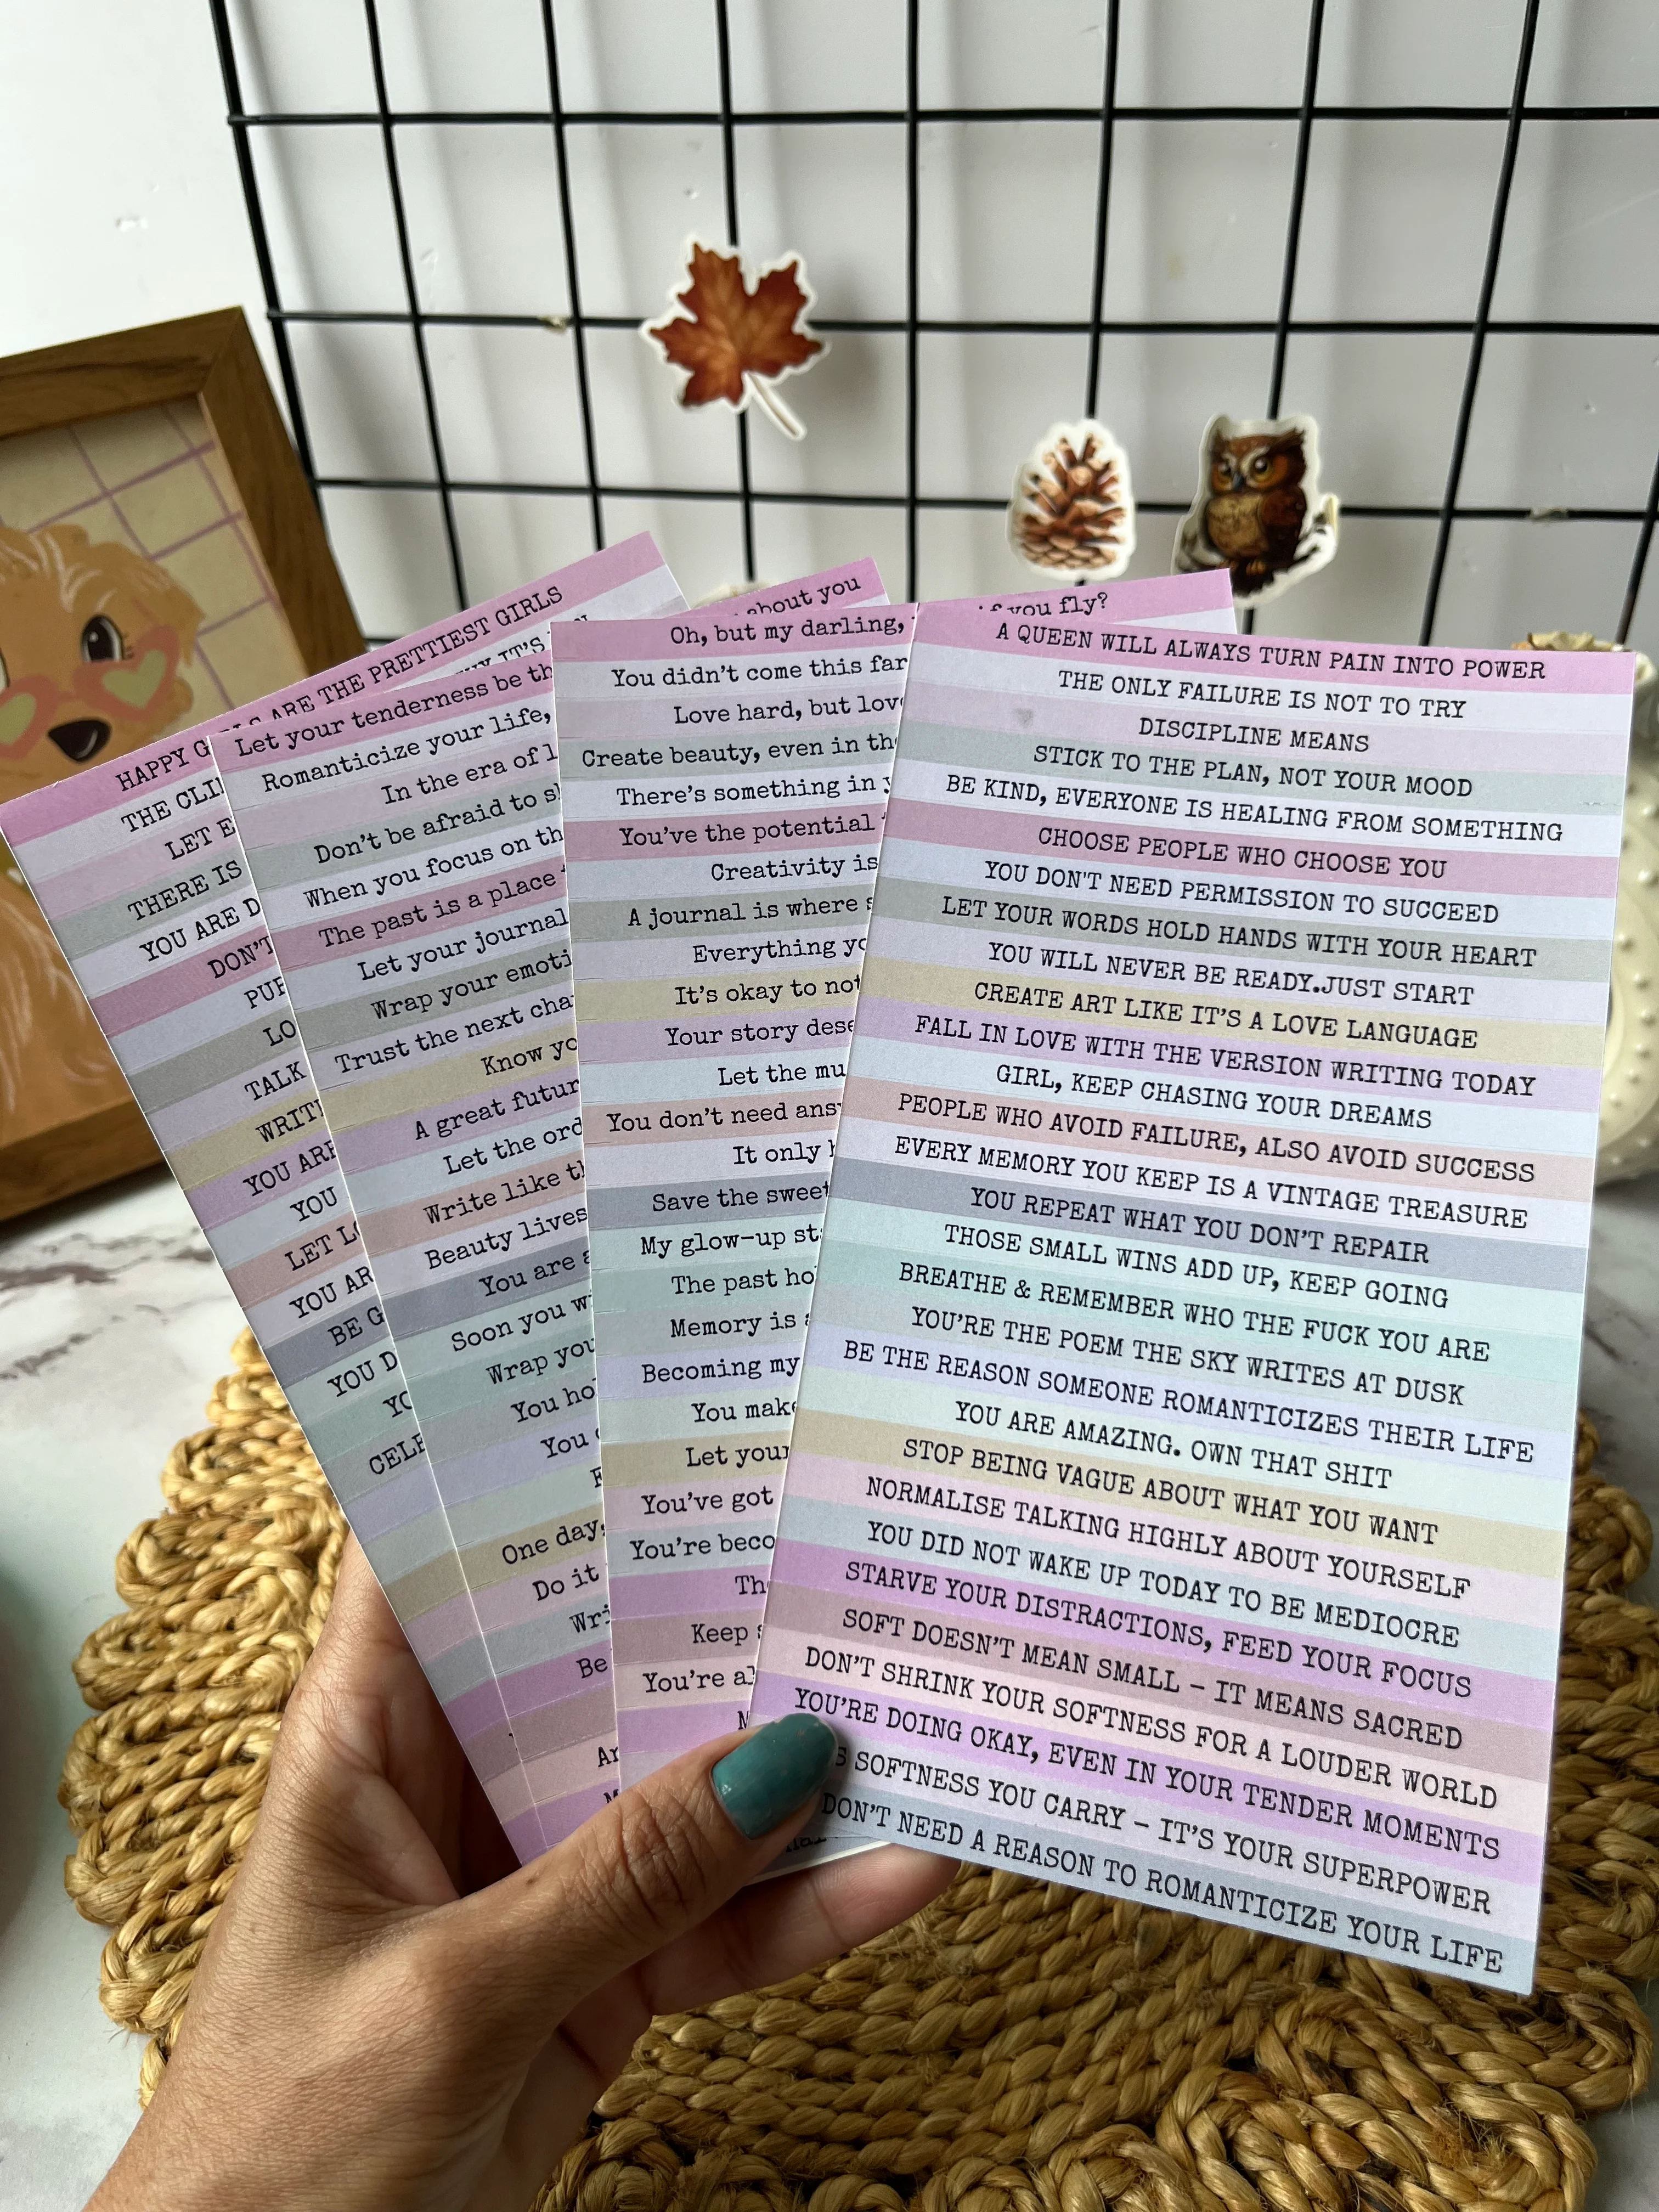 HAPPY G
LS ARE THE PRETTIEST GIRLS
THE CLI
Y IT'S
LET E
THERE IS
YOU ARE D
DON'T
PUR
LO
TALK
WRIT
YOU ARE
YOU
LET LO
YOU AR
BE G
YOU D
YO
CELE
about you
Let your tenderness be th
Romanticize your life,
In the era of l
Don't be afraid to s
When you focus on th
The past is a place
Let your journal
Wrap your emoti
Trust the next cha
Know yo
A great futur
Let the ord
Write like th
Beauty lives
You are a
Soon you w
Wrap you
You ho
You
One day,
Do it
Wri
Be
Ar
M
if you fly?
Oh, but my darling,
You didn't come this far
Love hard, but lov
Create beauty, even in th
There's something in y
You've the potential
Creativity is
A journal is where s
Everything yo
It's okay to not
Your story dese
Let the mu
You don't need ans
It only h
Save the sweet
My glow-up st
The past ho
Memory is a
Becoming my
You make
Let your
You've got
You're beco
Th
Keep s
You're al
M
A QUEEN WILL ALWAYS TURN PAIN INTO POWER
THE ONLY FAILURE IS NOT TO TRY
DISCIPLINE MEANS
STICK TO THE PLAN, NOT YOUR MOOD
BE KIND, EVERYONE IS HEALING FROM SOMETHING
CHOOSE PEOPLE WHO CHOOSE YOU
YOU DON'T NEED PERMISSION TO SUCCEED
LET YOUR WORDS HOLD HANDS WITH YOUR HEART
YOU WILL NEVER BE READY.JUST START
CREATE ART LIKE IT'S A LOVE LANGUAGE
FALL IN LOVE WITH THE VERSION WRITING TODAY
GIRL, KEEP CHASING YOUR DREAMS
PEOPLE WHO AVOID FAILURE, ALSO AVOID SUCCESS
EVERY MEMORY YOU KEEP IS A VINTAGE TREASURE
YOU REPEAT WHAT YOU DON'T REPAIR
THOSE SMALL WINS ADD UP, KEEP GOING
BREATHE & REMEMBER WHO THE FUCK YOU ARE
YOU'RE THE POEM THE SKY WRITES AT DUSK
BE THE REASON SOMEONE ROMANTICIZES THEIR LIFE
YOU ARE AMAZING. OWN THAT SHIT
STOP BEING VAGUE ABOUT WHAT YOU WANT
NORMALISE TALKING HIGHLY ABOUT YOURSELF
YOU DID NOT WAKE UP TODAY TO BE MEDIOCRE
STARVE YOUR DISTRACTIONS, FEED YOUR FOCUS
SOFT DOESN'T MEAN SMALL – IT MEANS SACRED
DON'T SHRINK YOUR SOFTNESS FOR A LOUDER WORLD
YOU'RE DOING OKAY, EVEN IN YOUR TENDER MOMENTS
S SOFTNESS YOU CARRY – IT'S YOUR SUPERPOWER
DON'T NEED A REASON TO ROMANTICIZE YOUR LIFE